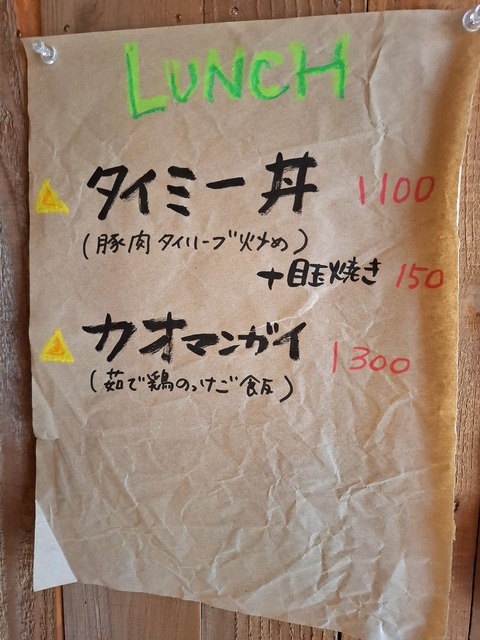 LUNCH
タイミー丼 1100
(豚肉タイハーブ炒め)
+目玉焼き 150
カオマンガイ 1300
(茹で鶏のっけご飯)